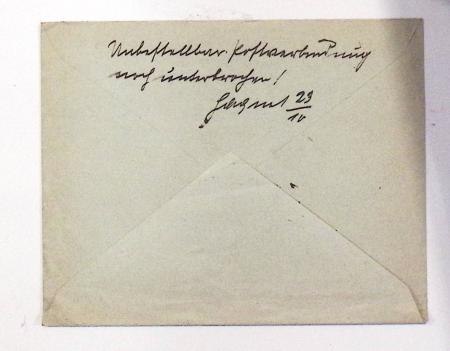 Unbestellbar. Postverbindung
noch unterbrochen!
23
10